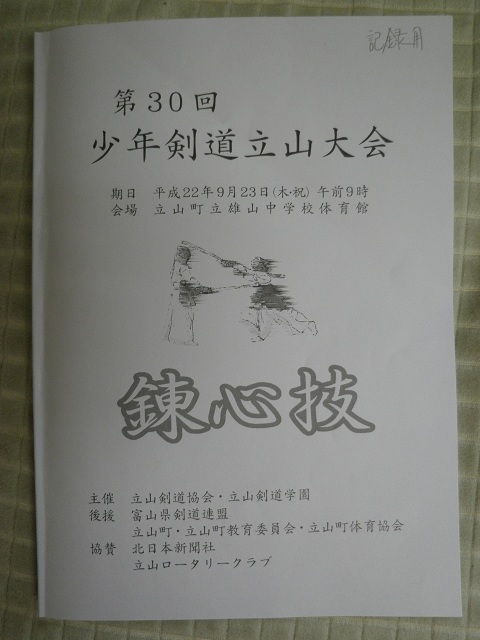 記録用
第30回
少年剣道立山大会
期日 平成22年9月23日(木・祝) 午前9時
会場 立山町立雄山中学校体育館
錬心技
主催 立山剣道協会・立山剣道学園
後援 富山県剣道連盟
立山町・立山町教育委員会・立山町体育協会
協賛 北日本新聞社
立山ロータリークラブ